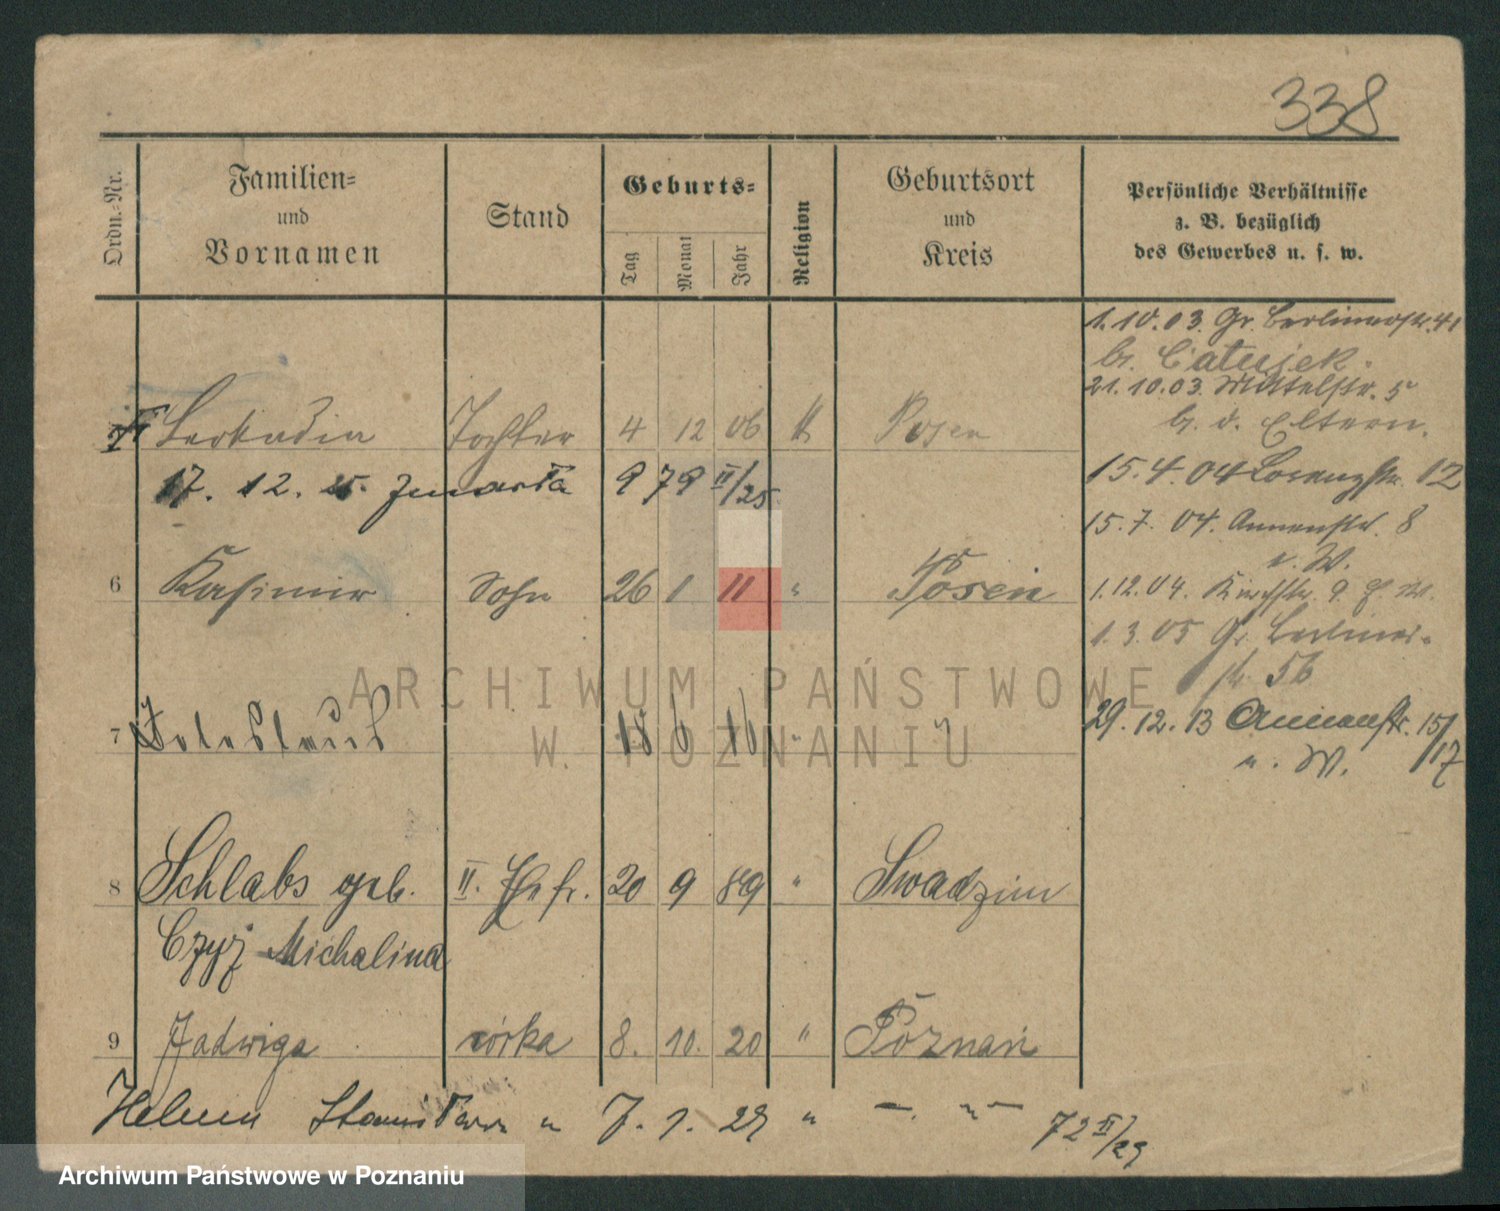 338
Ordn.-Nr.
Familien-
und
Vornamen
Stand
Geburts-
Tag
Monat
Jahr
Religion
Geburtsort
und
Kreis
Persönliche Verhältnisse
z. B. bezüglich
des Gewerbes u. s. w.
1.10.03. Gr. Berlinerstr. 41
21.10.03. Mittelstr. 5
b. d. Eltern.
Leokadia Tochter 4 12 06 k Posen
17. 12. 25. zmarła 979 II/25
15.4.04 Lorenzstr. 12
15.7.04. Annenstr. 8
u. W.
6 Kasimir Sohn 26 1 11 " Posen
1.12.04. Kirchstr. 9
1.3.05 Gr. Berliner-
str 56
7 18 6 16 "
29.12.13 Annenstr. 15/17
u. W.
8 Schlabs geb. II. Ehefr. 20 9 89 " Swadzim
Czyż Michalina
9 Jadwiga córka 8. 10. 20 " Poznań
7. 1. 29 " 72 II/29
ARCHIWUM PAŃSTWOWE
W POZNANIU
Archiwum Państwowe w Poznaniu